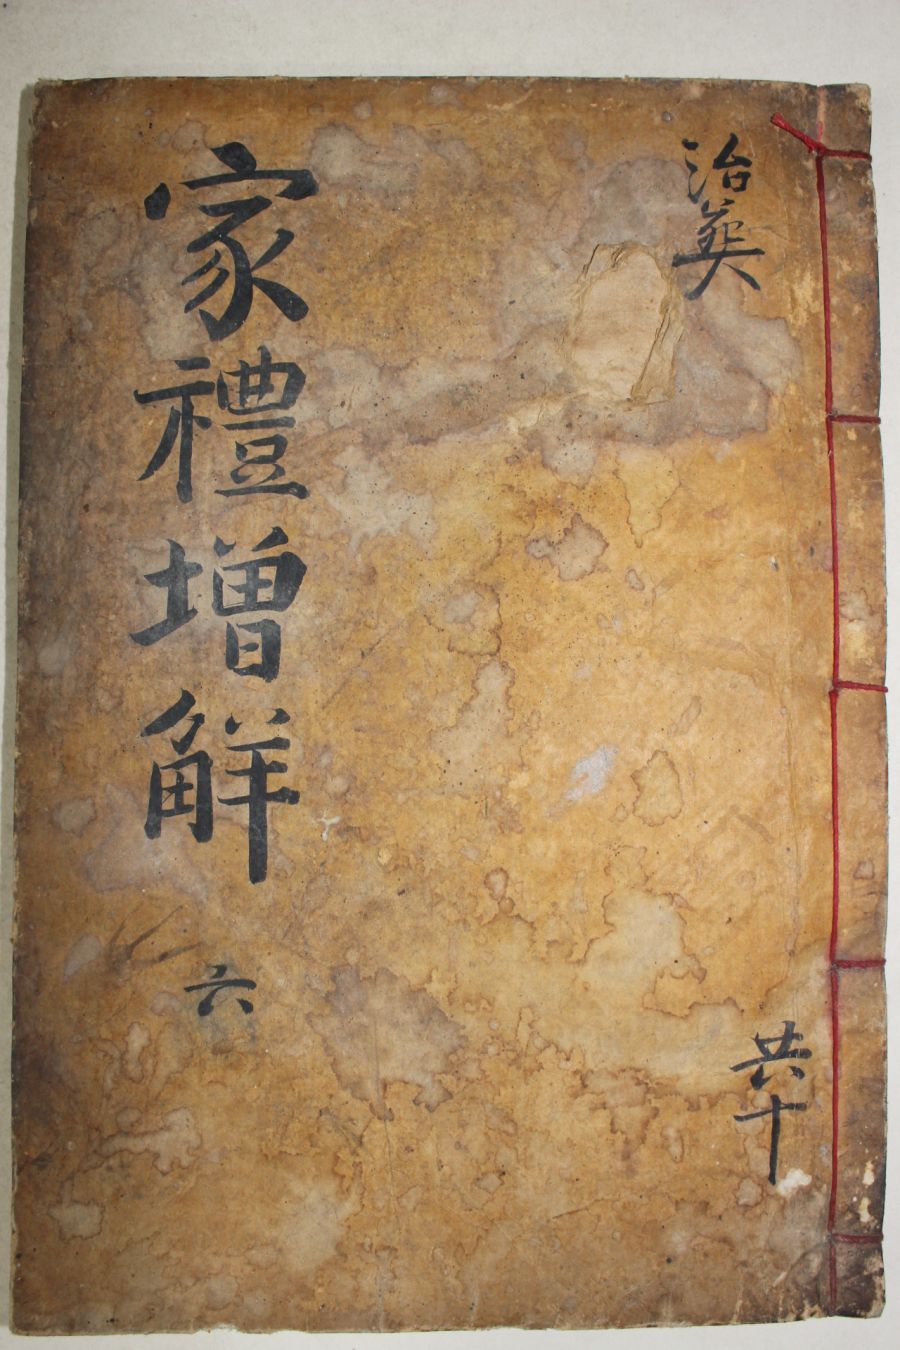 治葬
共十
家禮增觧
六